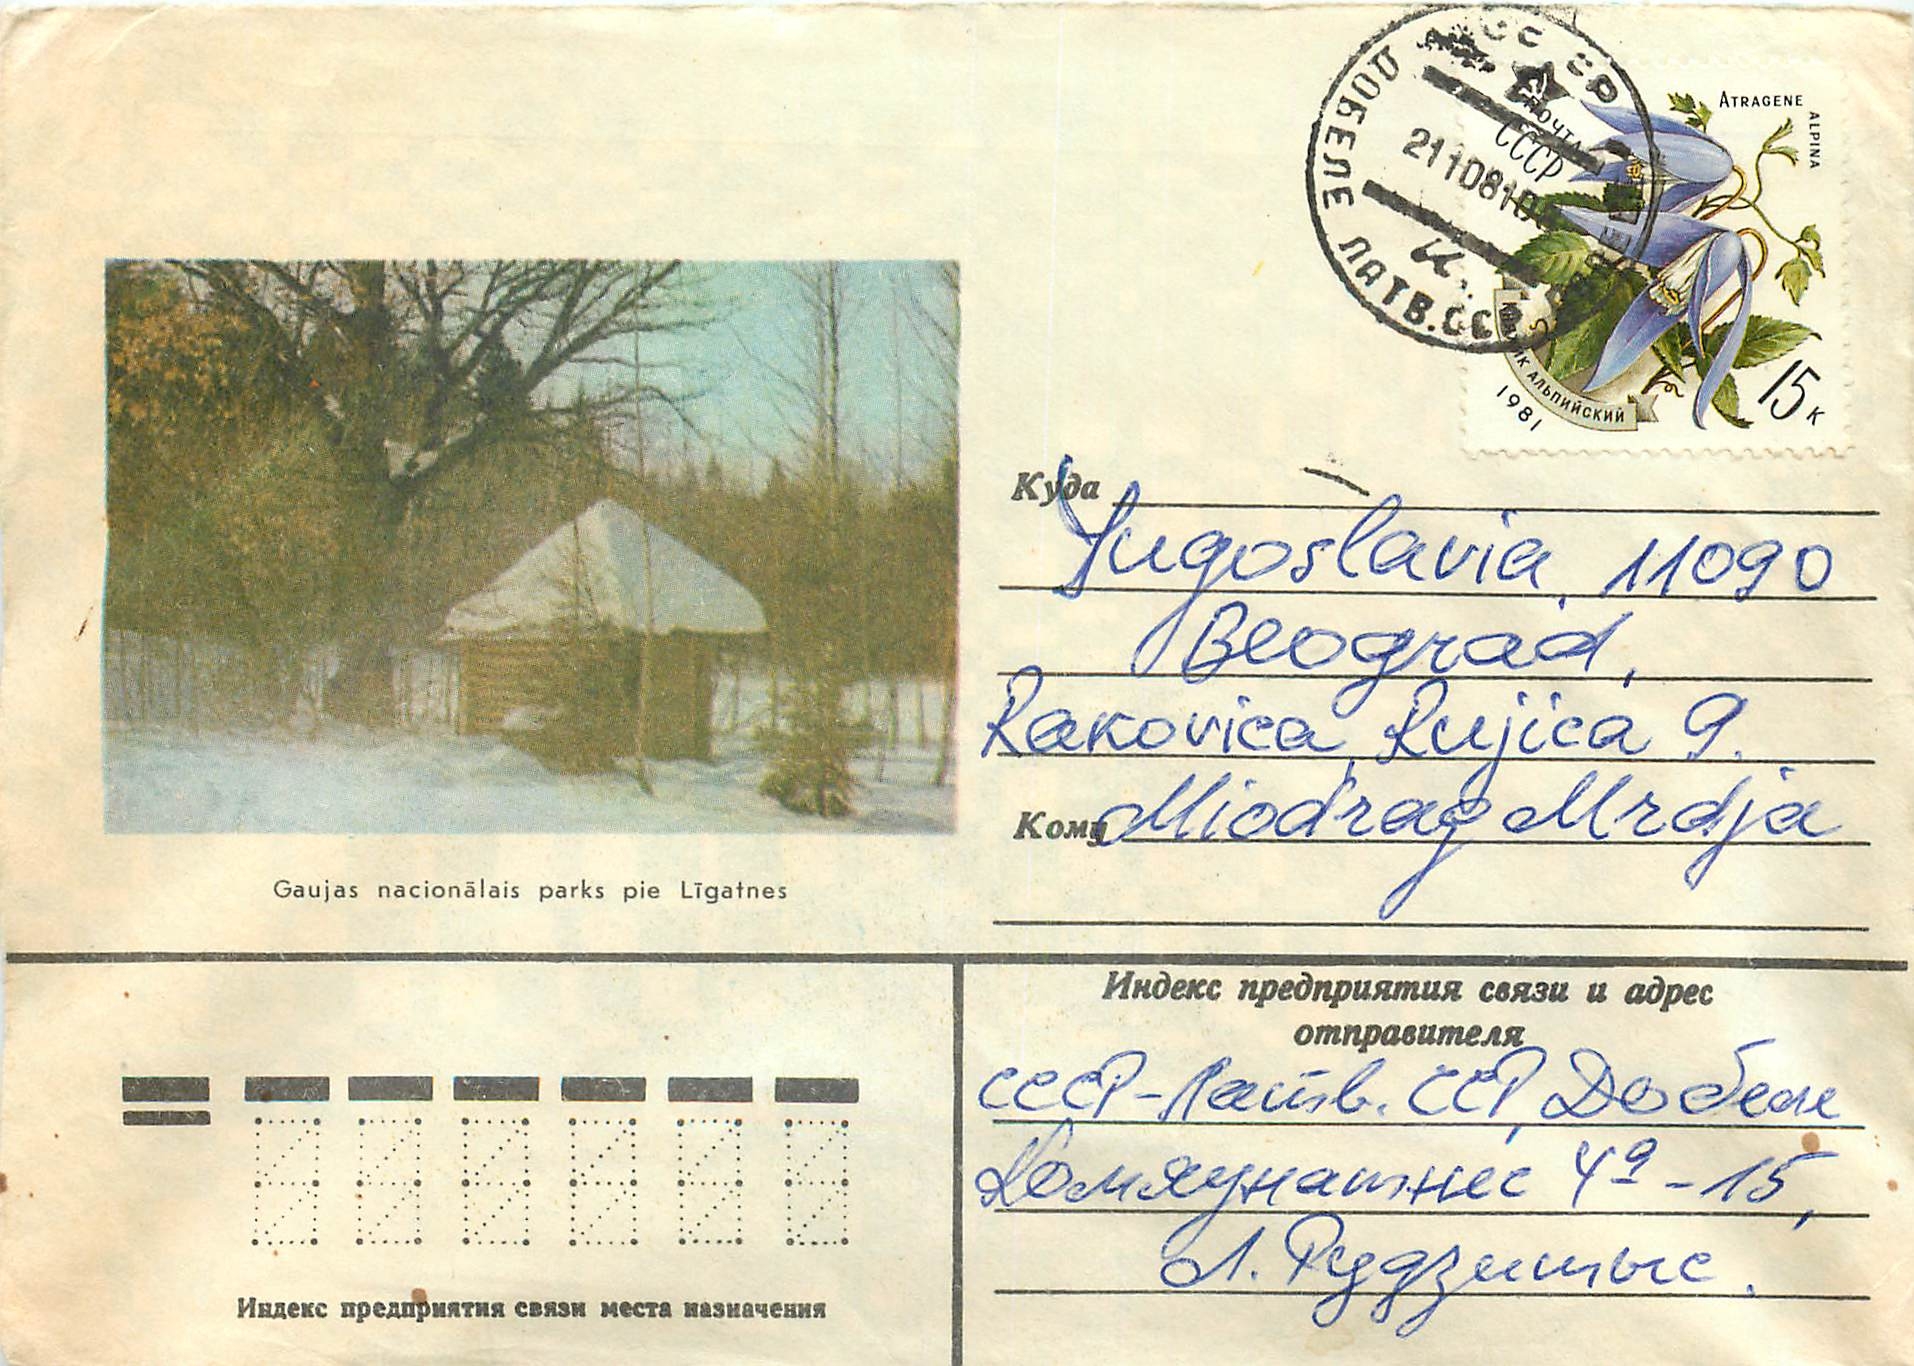 ДОБЕЛЕ ЛАТВ.ССР
2110810
ПОЧТА
СССР
ATRAGENE
ALPINA
АЛЬПИЙСКИЙ
1981
15 к
Куда
Yugoslavia, 11090
Beograd,
Rakovica, Rujica 9.
Кому Miodrag Mrdja
Gaujas nacionālais parks pie Līgatnes
Индекс предприятия связи и адрес
отправителя
СССР-Латв. ССР, Добеле
49-15,
Л. Рудзитыс.
Индекс предприятия связи места назначения